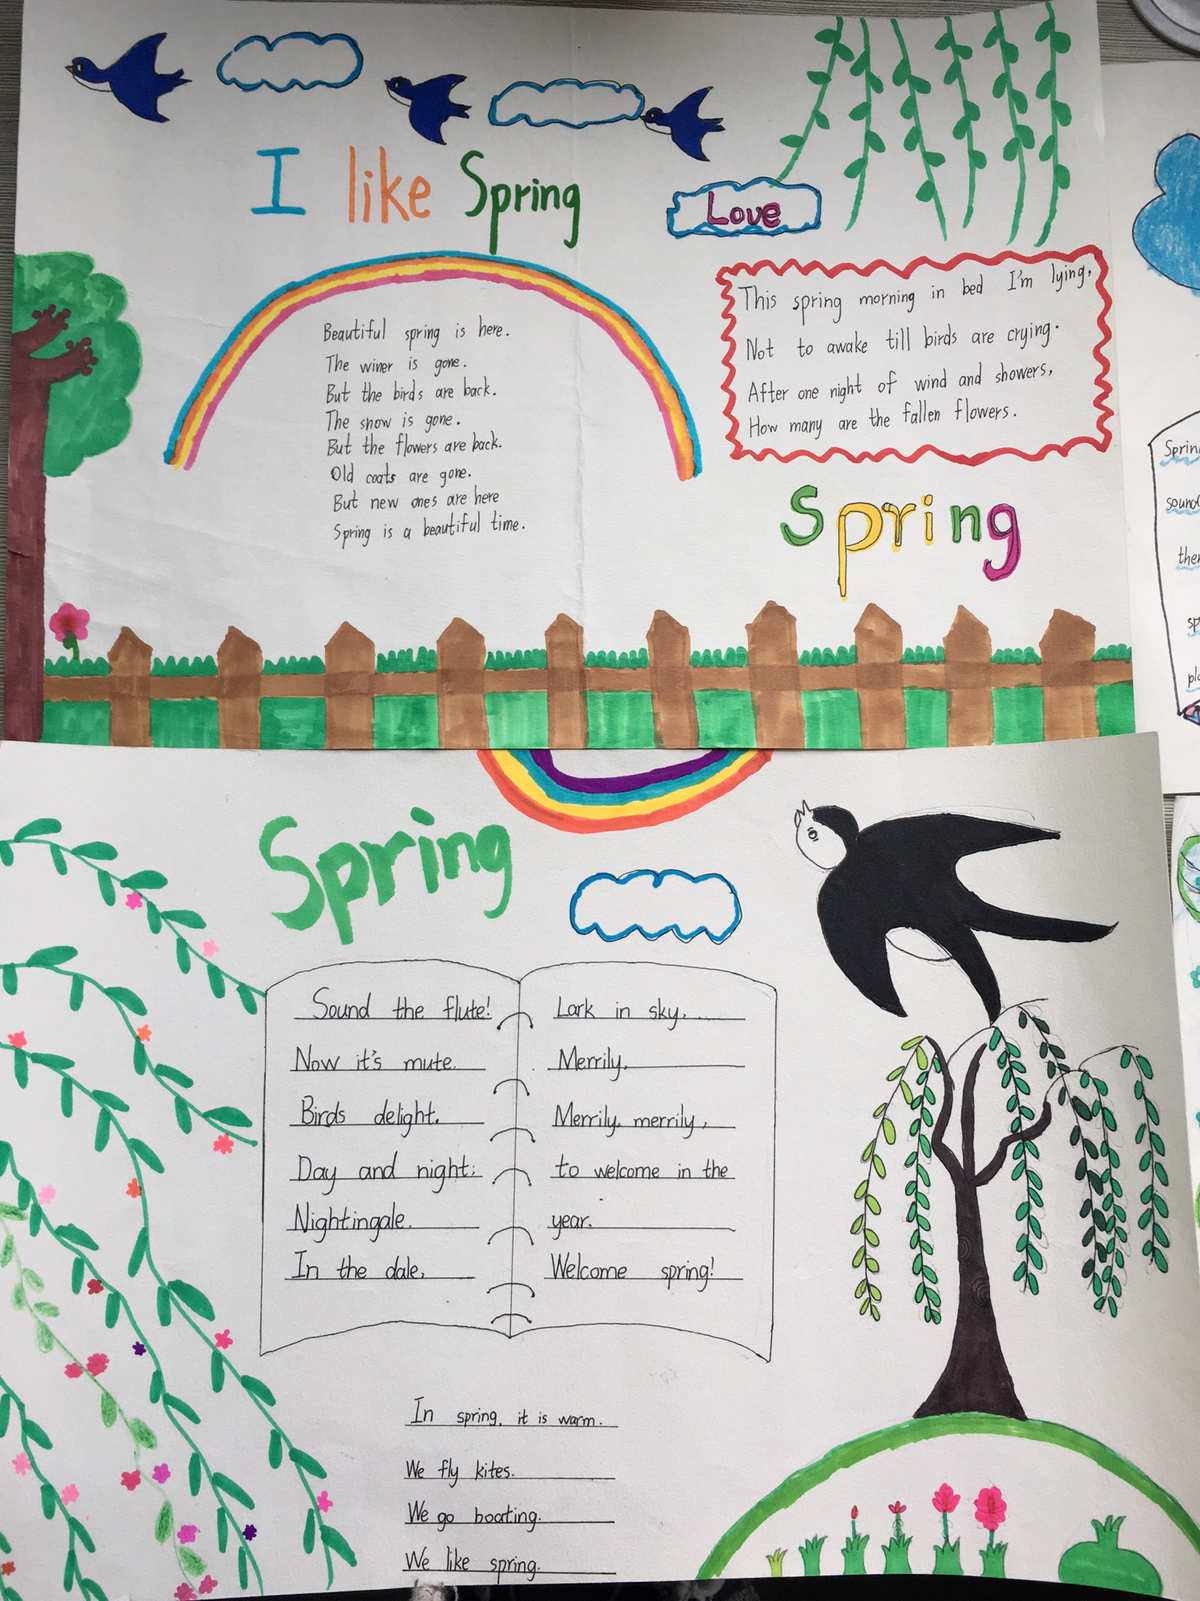 I like Spring
Love
Beautiful spring is here.
The winer is gone.
But the birds are back.
The snow is gone.
But the flowers are back.
Old coats are gone.
But new ones are here
Spring is a beautiful time.
This spring morning in bed I'm lying,
Not to awake till birds are crying.
After one night of wind and showers,
How many are the fallen flowers.
Spring
Spring
Sound the flute!
Now it's mute.
Birds delight.
Day and night;
Nightingale.
In the dale,
Lark in sky.
Merrily,
Merrily, merrily,
to welcome in the
year.
Welcome spring!
In spring, it is warm.
We fly kites.
We go boating.
We like spring.